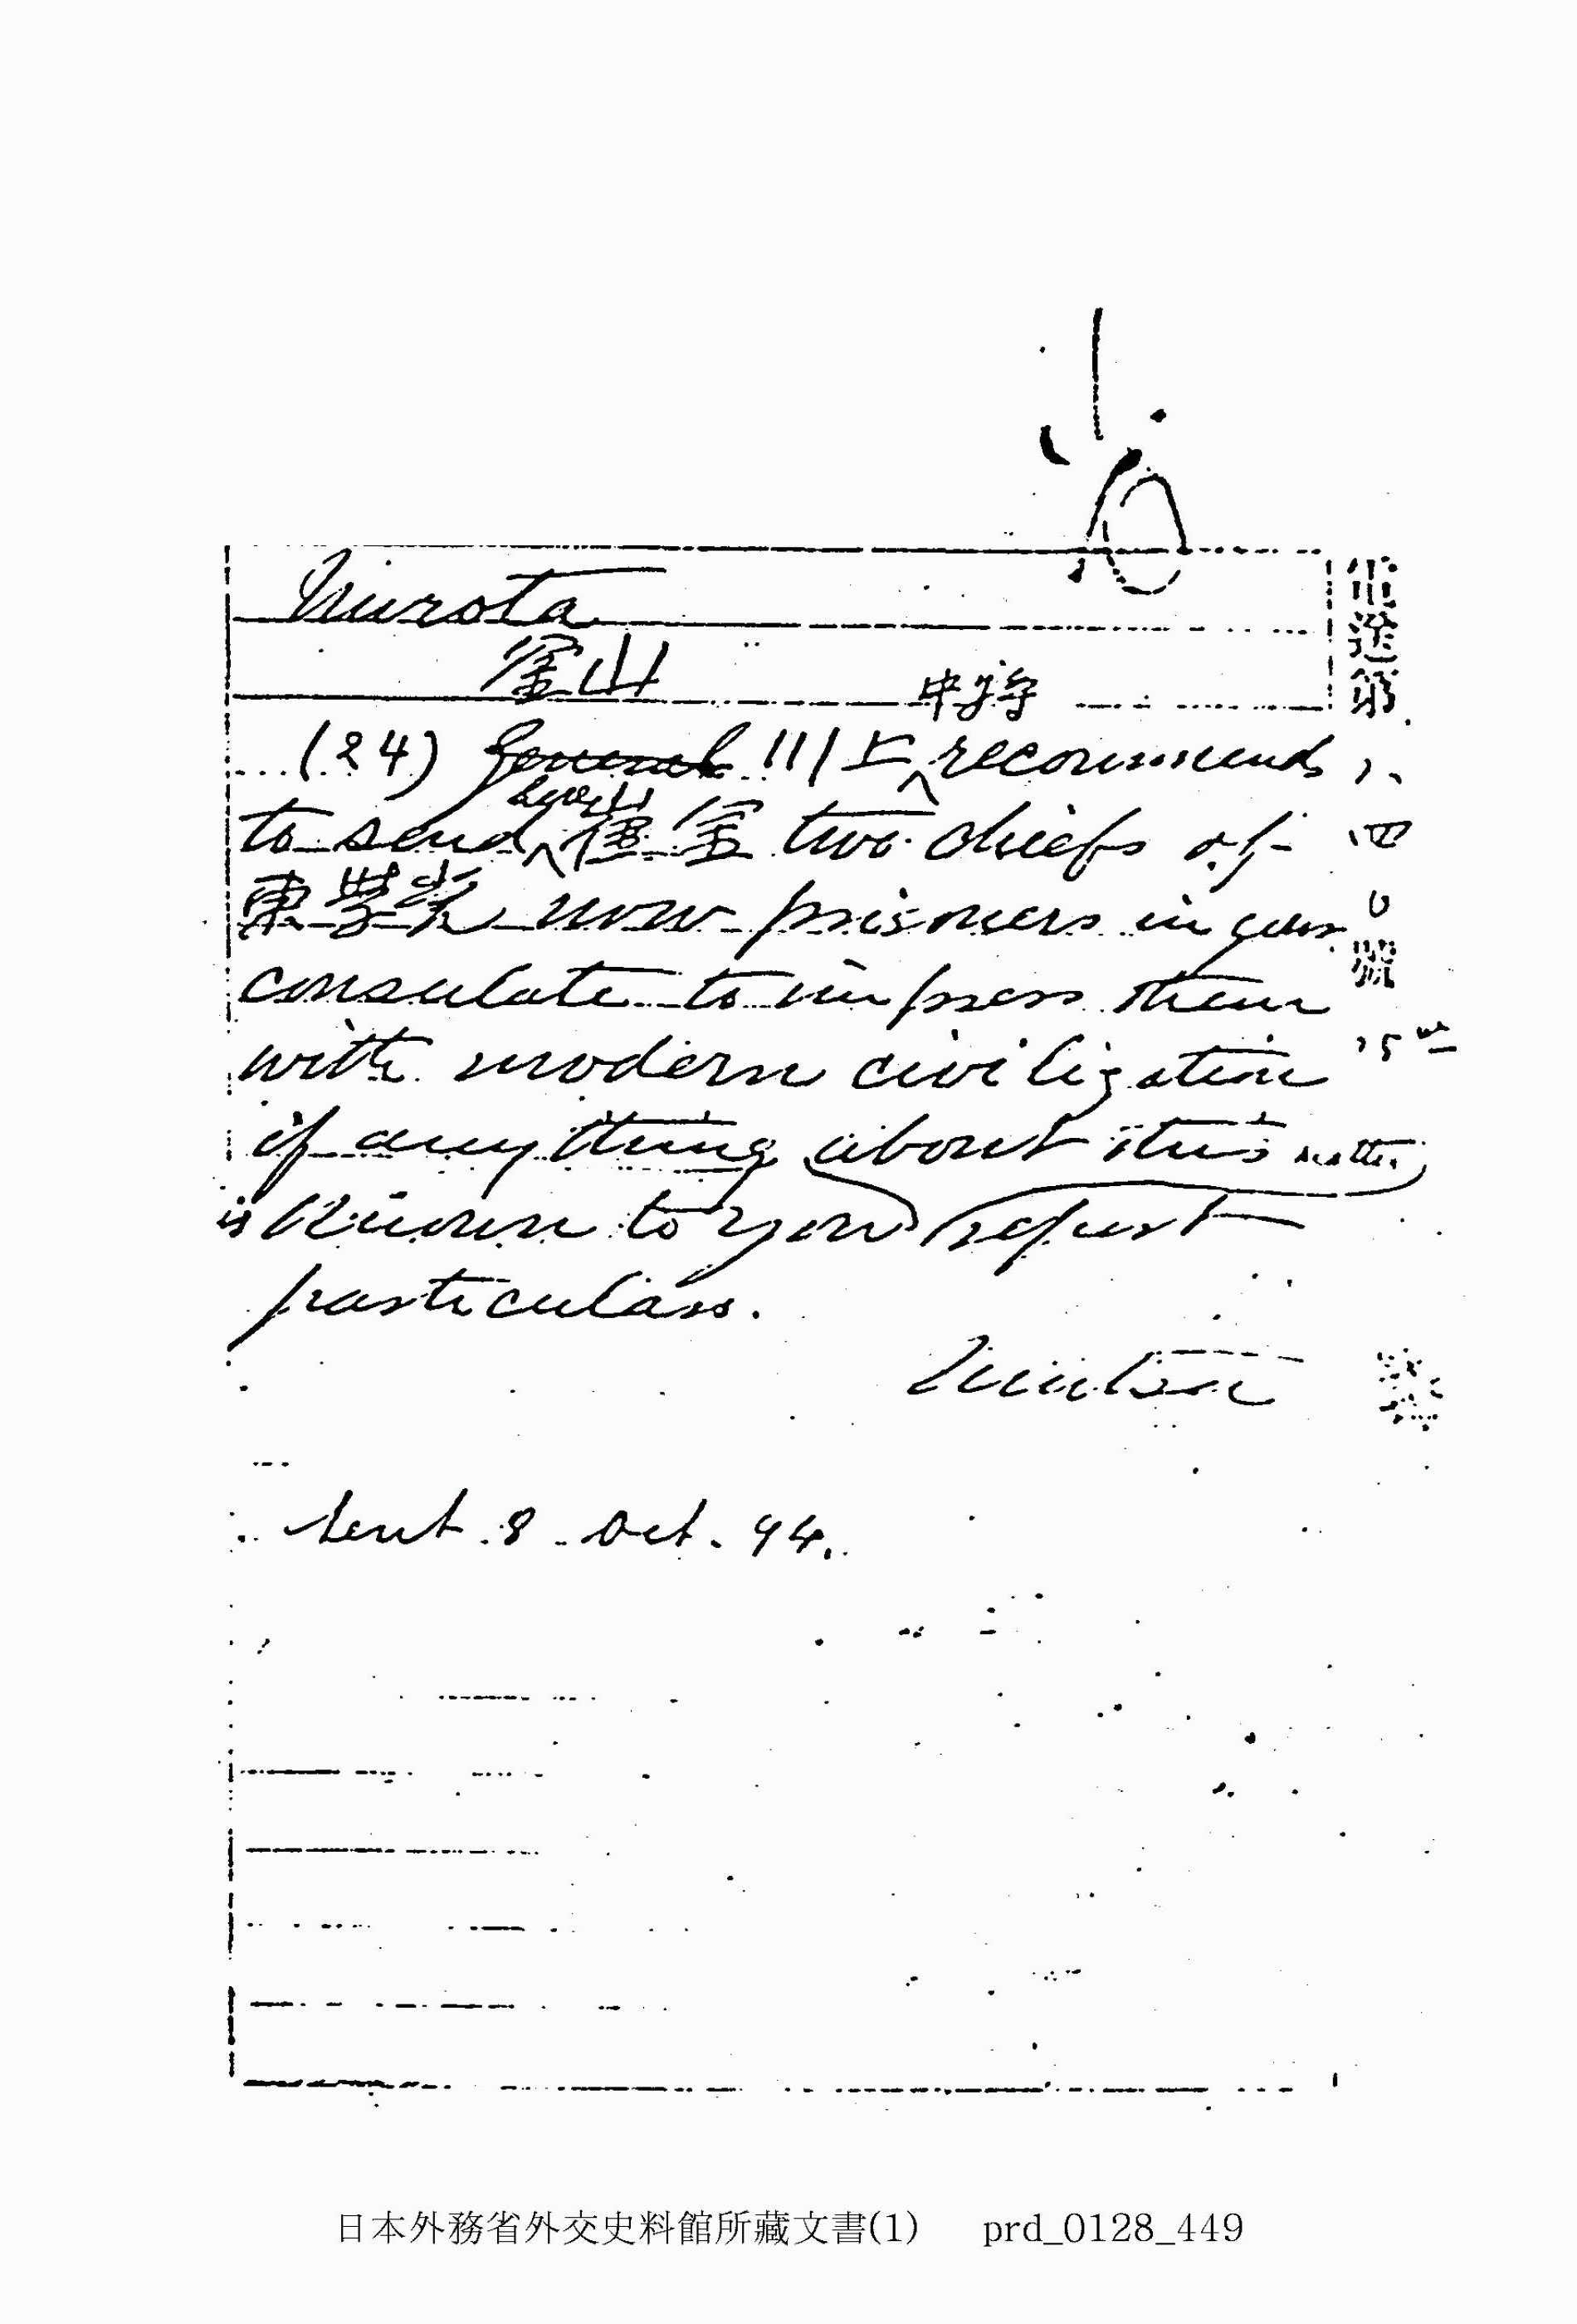 Murota
釜山
中將
(24) General 川上 recommends
to send 崔 金 two chiefs of
東學黨 now prisoners in your
consulate to impress them
with modern civilization
if anything about this matter
is known to you report
particulars.
Mutsu
Sent 8 Oct. 94.
電送第
四
號
日本外務省外交史料館所藏文書(1) prd_0128_449